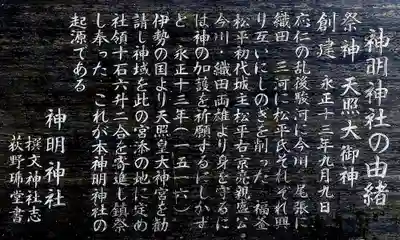 神明神社の由緒
祭神 天照大御神
創建 永正十三年九月九日
応仁の乱後駿河に今川、尾張に
織田、三河に松平氏それぞれ興
り互いにしのぎを削った。福釜
松平初代城主松平右京亮親盛公。
今川・織田両雄より身を守るに
は神の加護を祈願するにしかず
と、永正十三年(一五一六)
伊勢の国より天照皇大神宮を勧
請し神域を此の宮添の地に定め
社領十石六升二合を寄進し鎮祭
し奉った。これが本神明神社の
起源である
神明神社
撰文神社志
荻野珎堂書